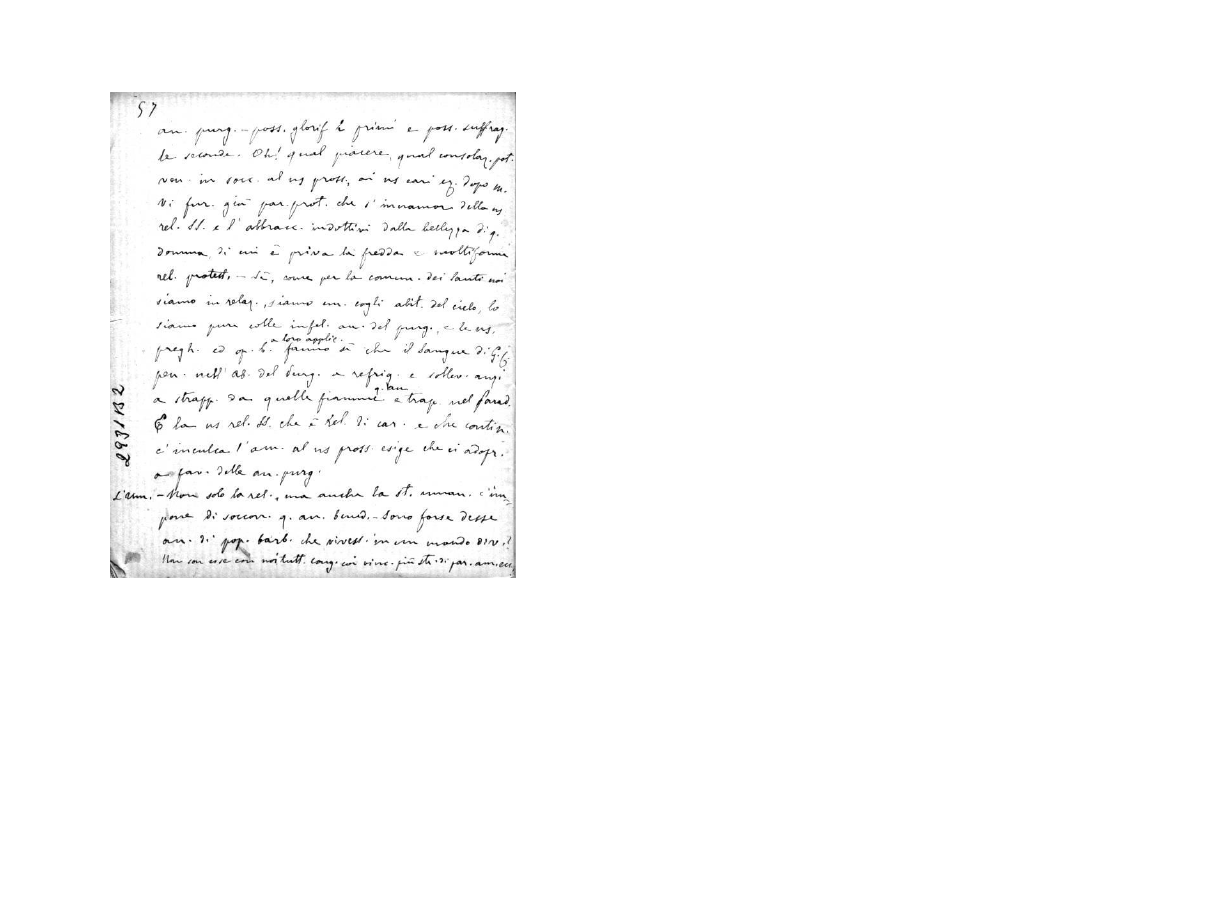 57
an. purg. - poss. glorif. i primi e poss. suffrag.
le seconde. Oh! qual piacere, qual consolaz. pot.
ven. in socc. al ns pross., ai ns cari ez. dopo m.
Vi fur. già par. prot. che s'innamor. della ns
rel. SS. e l'abbracc. indottivi dalla bellezza di q.
domma, di cui è priva la fredda e moltiforme
rel. protest. - Sì, come per la comun. dei Santi noi
siamo in relaz., siamo un. cogli abit. del cielo, lo
siamo pure colle infel. an. del purg., e le ns.
pregh. ed op. b. a loro applic. fanno sì che il Sangue di G. C.
pen. nell'ab. del Purg. a refrig. e sollev. anzi
a strapp. da quelle fiamme q. an. e trap. nel Parad.
E la ns rel. SS. che è Rel. di car. e che contin.
c'inculca l'am. al ns pross. esige che ci adopr.
a fav. delle an. purg.
L'um. - Non solo la rel., ma anche la st. uman. c'im-
pone di soccorr. q. an. bened. - Sono forse desse
an. di pop. barb. che vivess. in un mondo div.?
Non son esse con noi tutt. cong. coi vinc. più str. di par. am. ecc.
2931B2